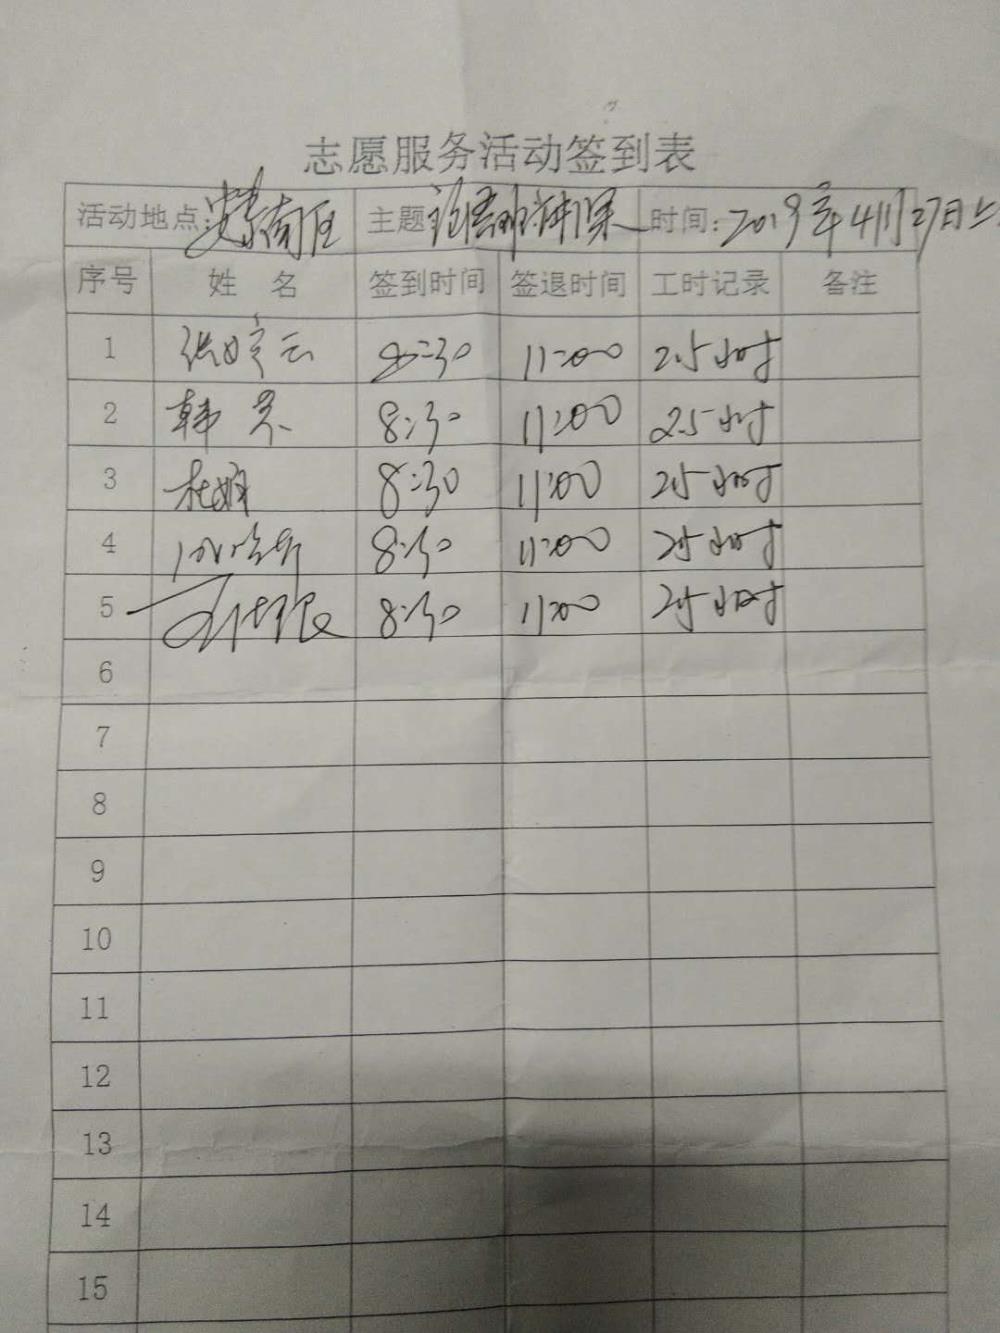 志愿服务活动签到表
活动地点: 主题 时间: 2019年4月27日上
序号 姓 名 签到时间 签退时间 工时记录 备注
1 8:30 11:00 2.5小时
2 韩 8:30 11:00 2.5小时
3 杜 8:30 11:00 2.5小时
4 8:30 11:00 2.5小时
5 8:30 11:00 2.5小时
6
7
8
9
10
11
12
13
14
15